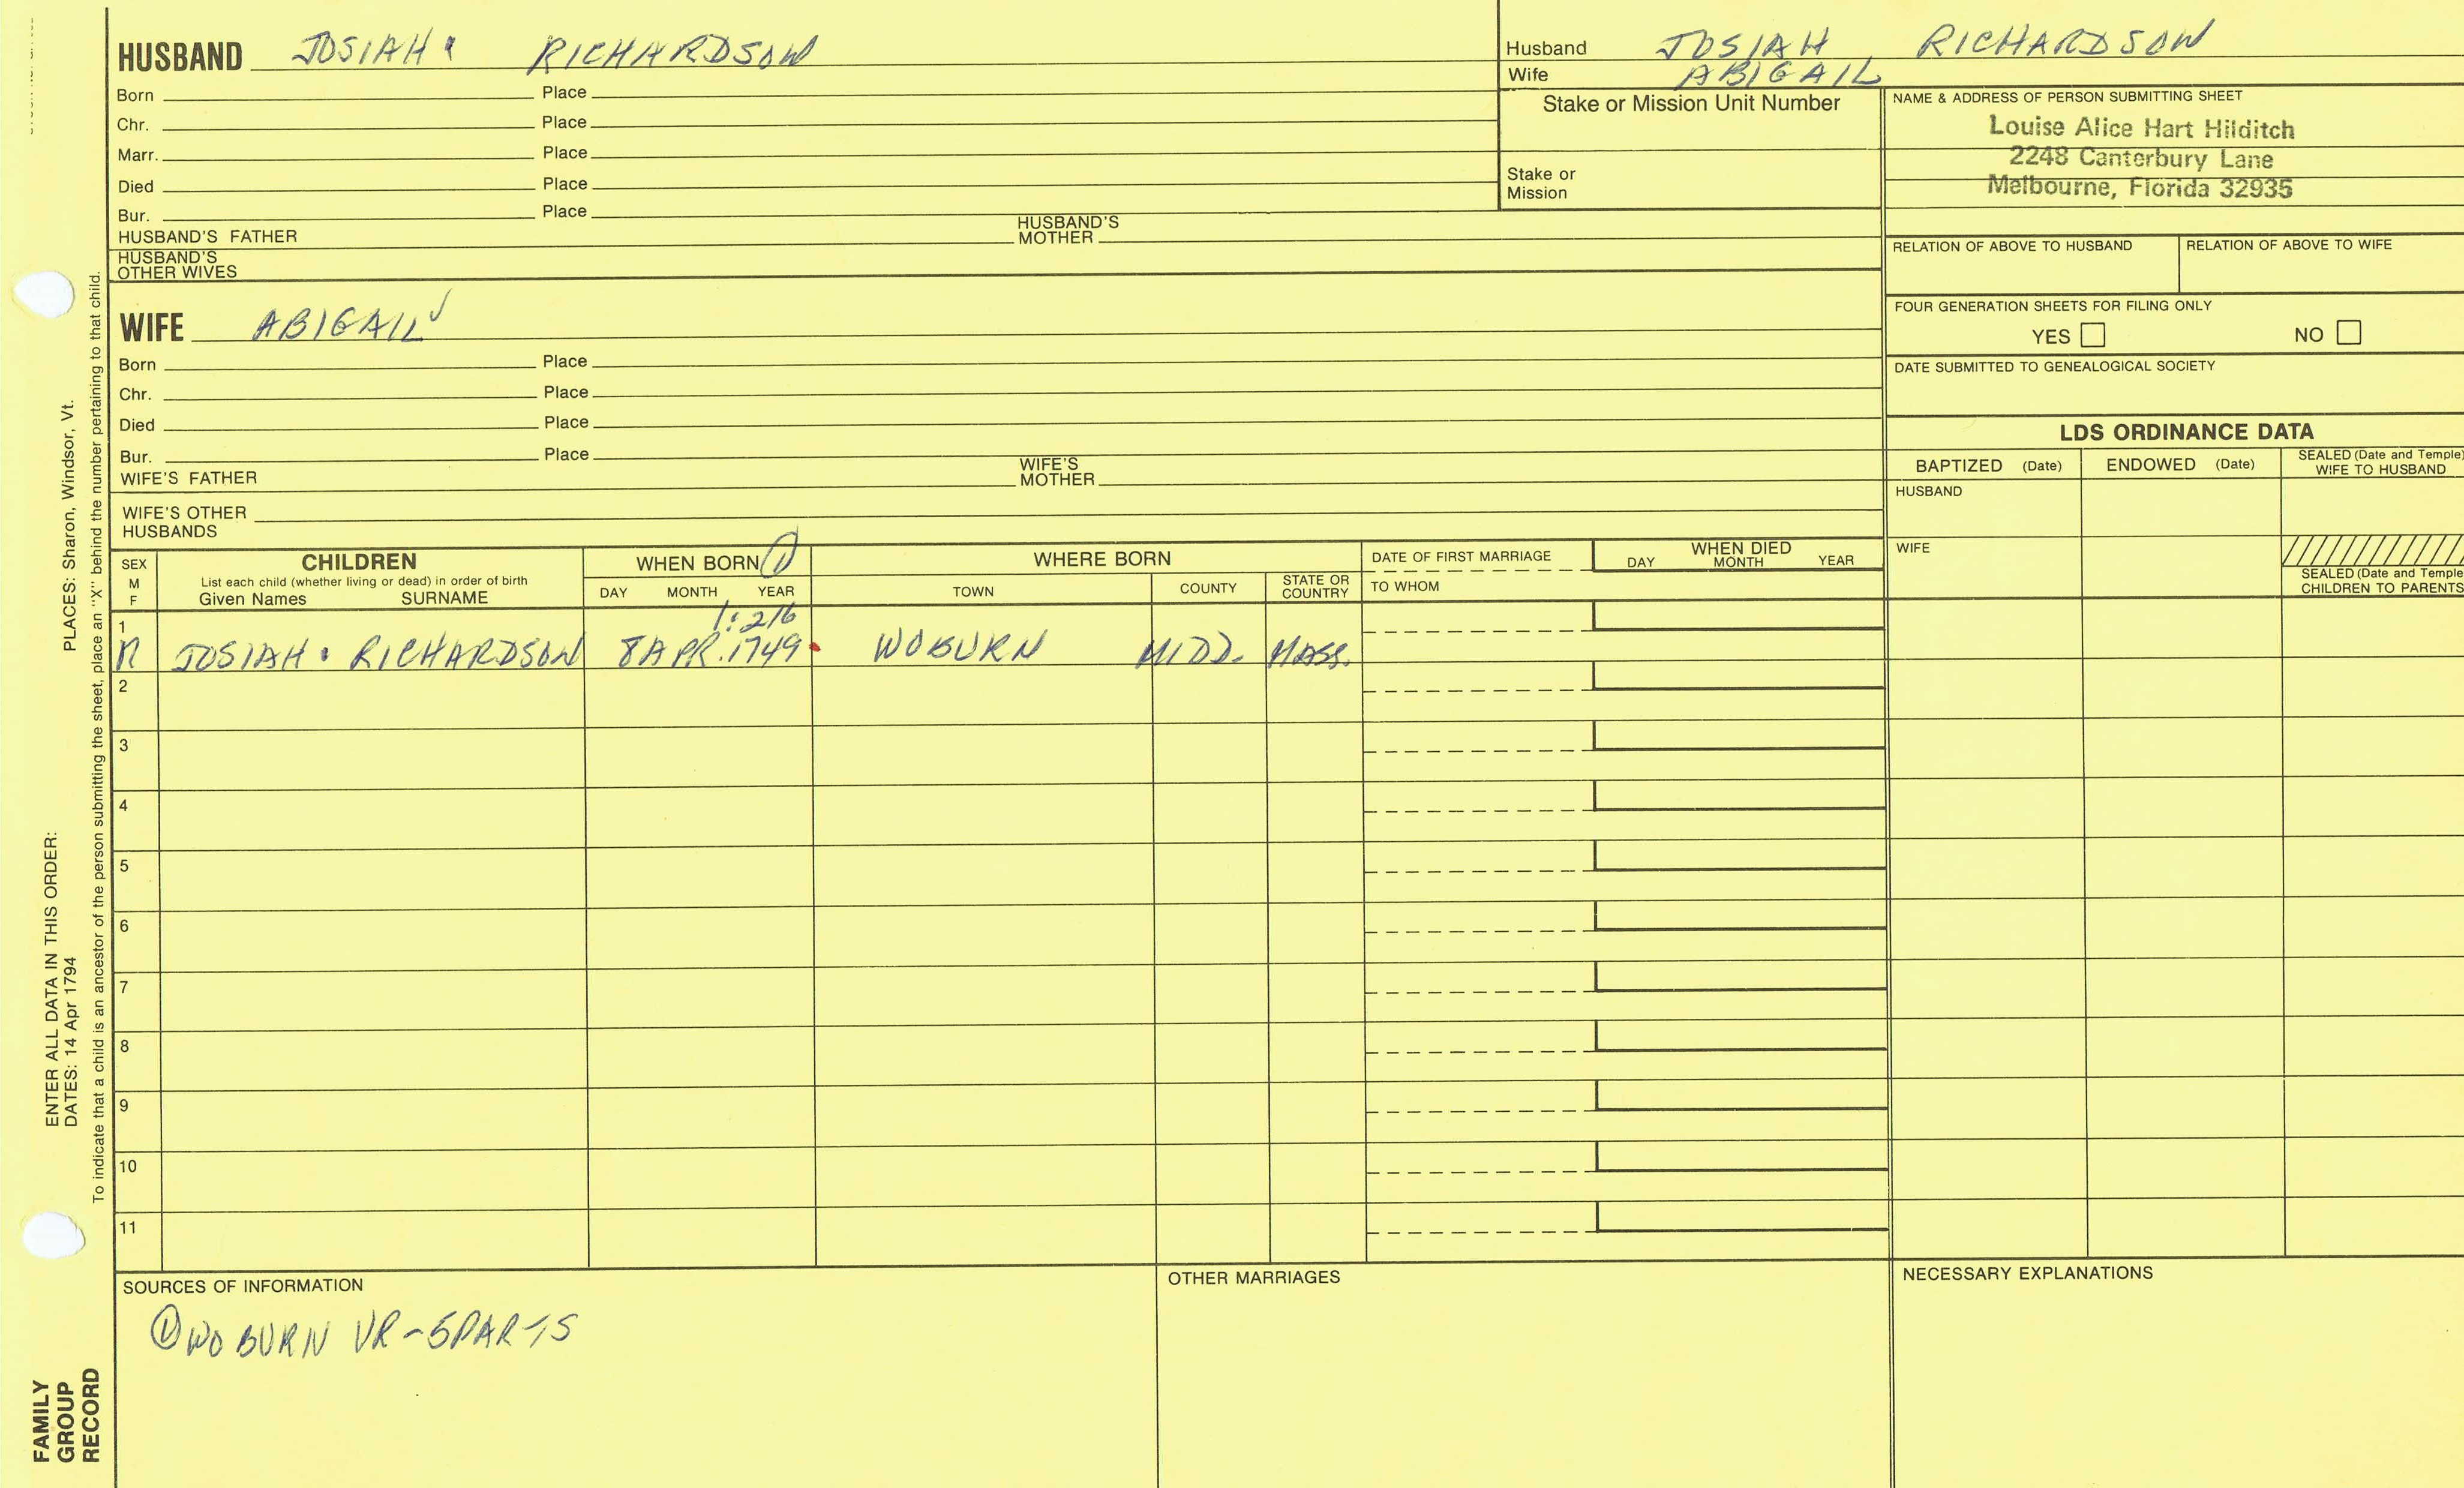 HUSBAND JOSIAH RICHARDSON
Born Place
Chr. Place
Marr. Place
Died Place
Bur. Place
HUSBAND'S FATHER HUSBAND'S MOTHER
HUSBAND'S OTHER WIVES
WIFE ABIGAIL
Born Place
Chr. Place
Died Place
Bur. Place
WIFE'S FATHER WIFE'S MOTHER
WIFE'S OTHER HUSBANDS
Husband JOSIAH RICHARDSON
Wife ABIGAIL
Stake or Mission Unit Number
Stake or
Mission
NAME & ADDRESS OF PERSON SUBMITTING SHEET
Louise Alice Hart Hilditch
2248 Canterbury Lane
Melbourne, Florida 32935
RELATION OF ABOVE TO HUSBAND RELATION OF ABOVE TO WIFE
FOUR GENERATION SHEETS FOR FILING ONLY
YES NO
DATE SUBMITTED TO GENEALOGICAL SOCIETY
LDS ORDINANCE DATA
BAPTIZED (Date) ENDOWED (Date) SEALED (Date and Temple) WIFE TO HUSBAND
HUSBAND
WIFE
SEALED (Date and Temple
CHILDREN TO PARENTS
SEX M F CHILDREN WHEN BORN ① WHERE BORN DATE OF FIRST MARRIAGE WHEN DIED
List each child (whether living or dead) in order of birth
Given Names SURNAME DAY MONTH YEAR TOWN COUNTY STATE OR COUNTRY TO WHOM DAY MONTH YEAR
1:216
1 M JOSIAH RICHARDSON 8 APR. 1749 WOBURN MIDD. MASS.
2
3
4
5
6
7
8
9
10
11
SOURCES OF INFORMATION OTHER MARRIAGES NECESSARY EXPLANATIONS
① WOBURN VR-5PARTS
PLACES: Sharon, Windsor, Vt.
ENTER ALL DATA IN THIS ORDER:
DATES: 14 Apr 1794
To indicate that a child is an ancestor of the person submitting the sheet, place an "X" behind the number pertaining to that child.
FAMILY
GROUP
RECORD